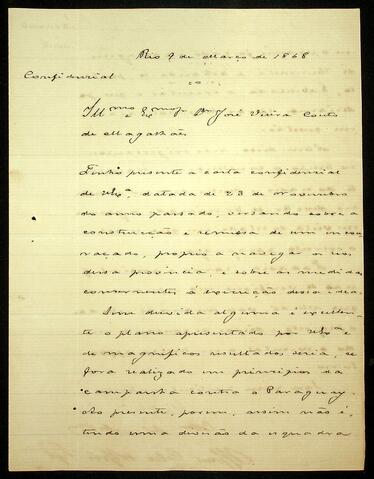 Rio 9 de Março de 1868
Confidencial
Ill.mo e Ex.mo Snr. Dr. José Vieira Couto
de Magalhães
Tenho presente a carta confidencial
de V.Ex.ª, datada de 23 de Novembro
do anno passado, versando sobre a
construcção e remessa de um encou
raçado, proprio a navegar os rios
dessa provincia, e sobre as medidas
concernentes á execução dessa idea.
Sem duvida alguma é excellen-
te o plano apresentado por V.Ex.ª e
de magnificos resultados seria, se
fora realizado em principios da
campanha contra o Paraguay.
Ao presente, porem, assim não é,
tendo uma divisão da esquadra